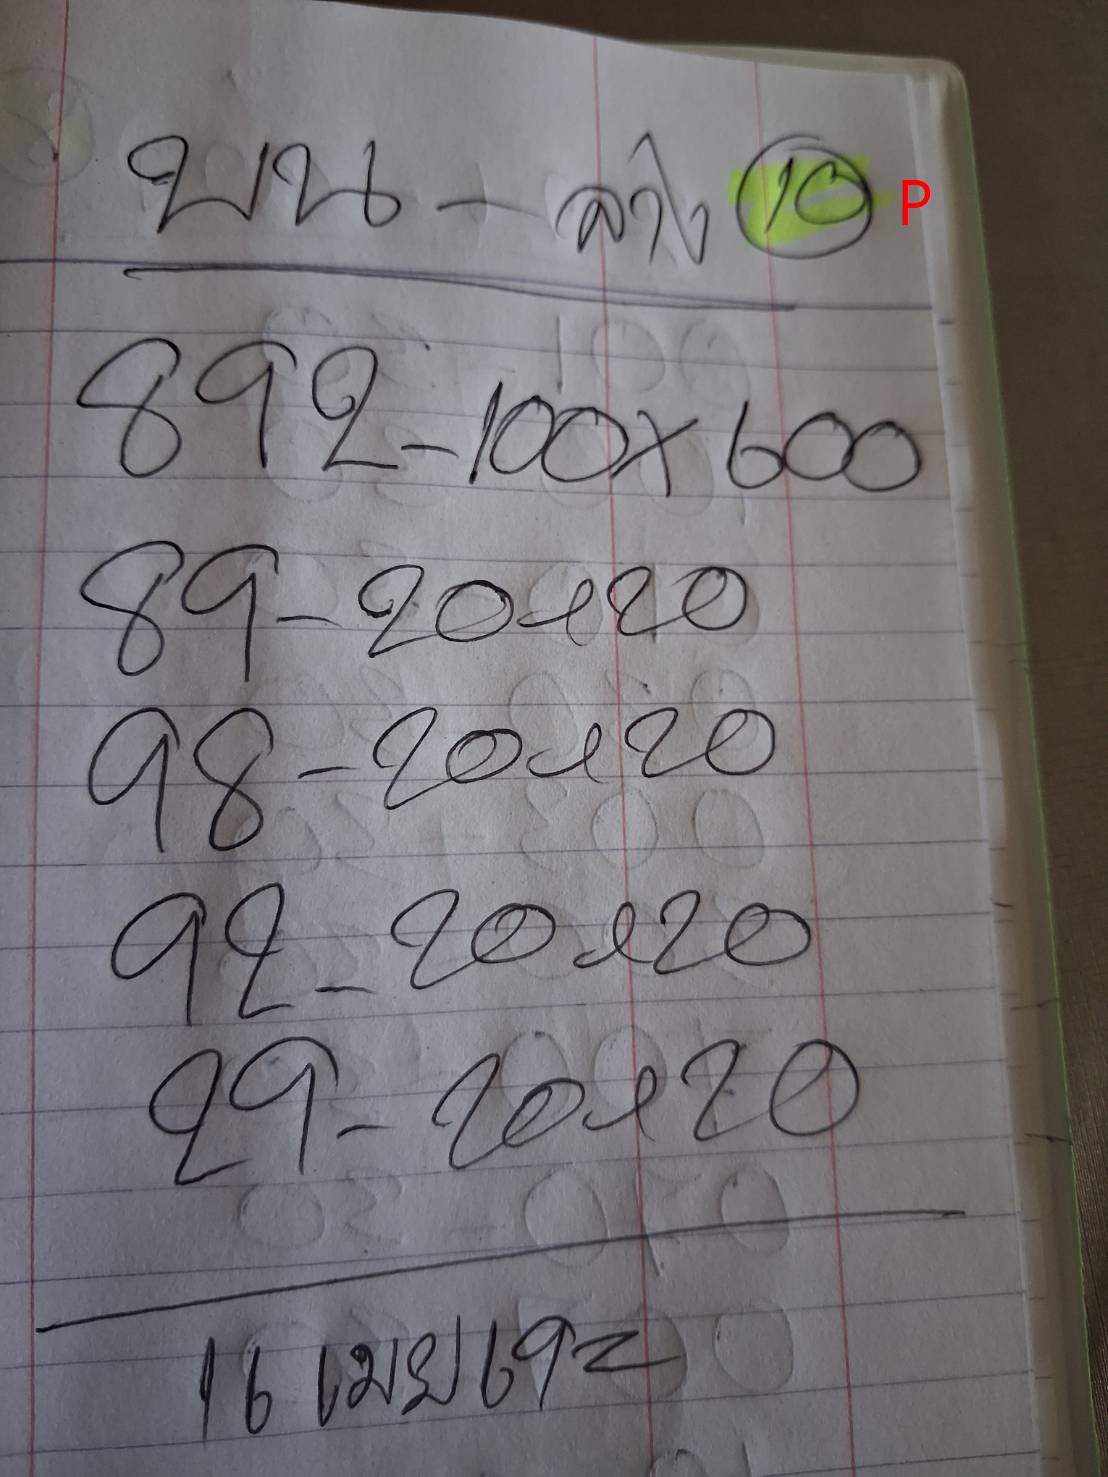 บน - ล่าง 10 P
892-100x600
89-20x20
98-20x20
92-20x20
29-20x20
16 เมย 69